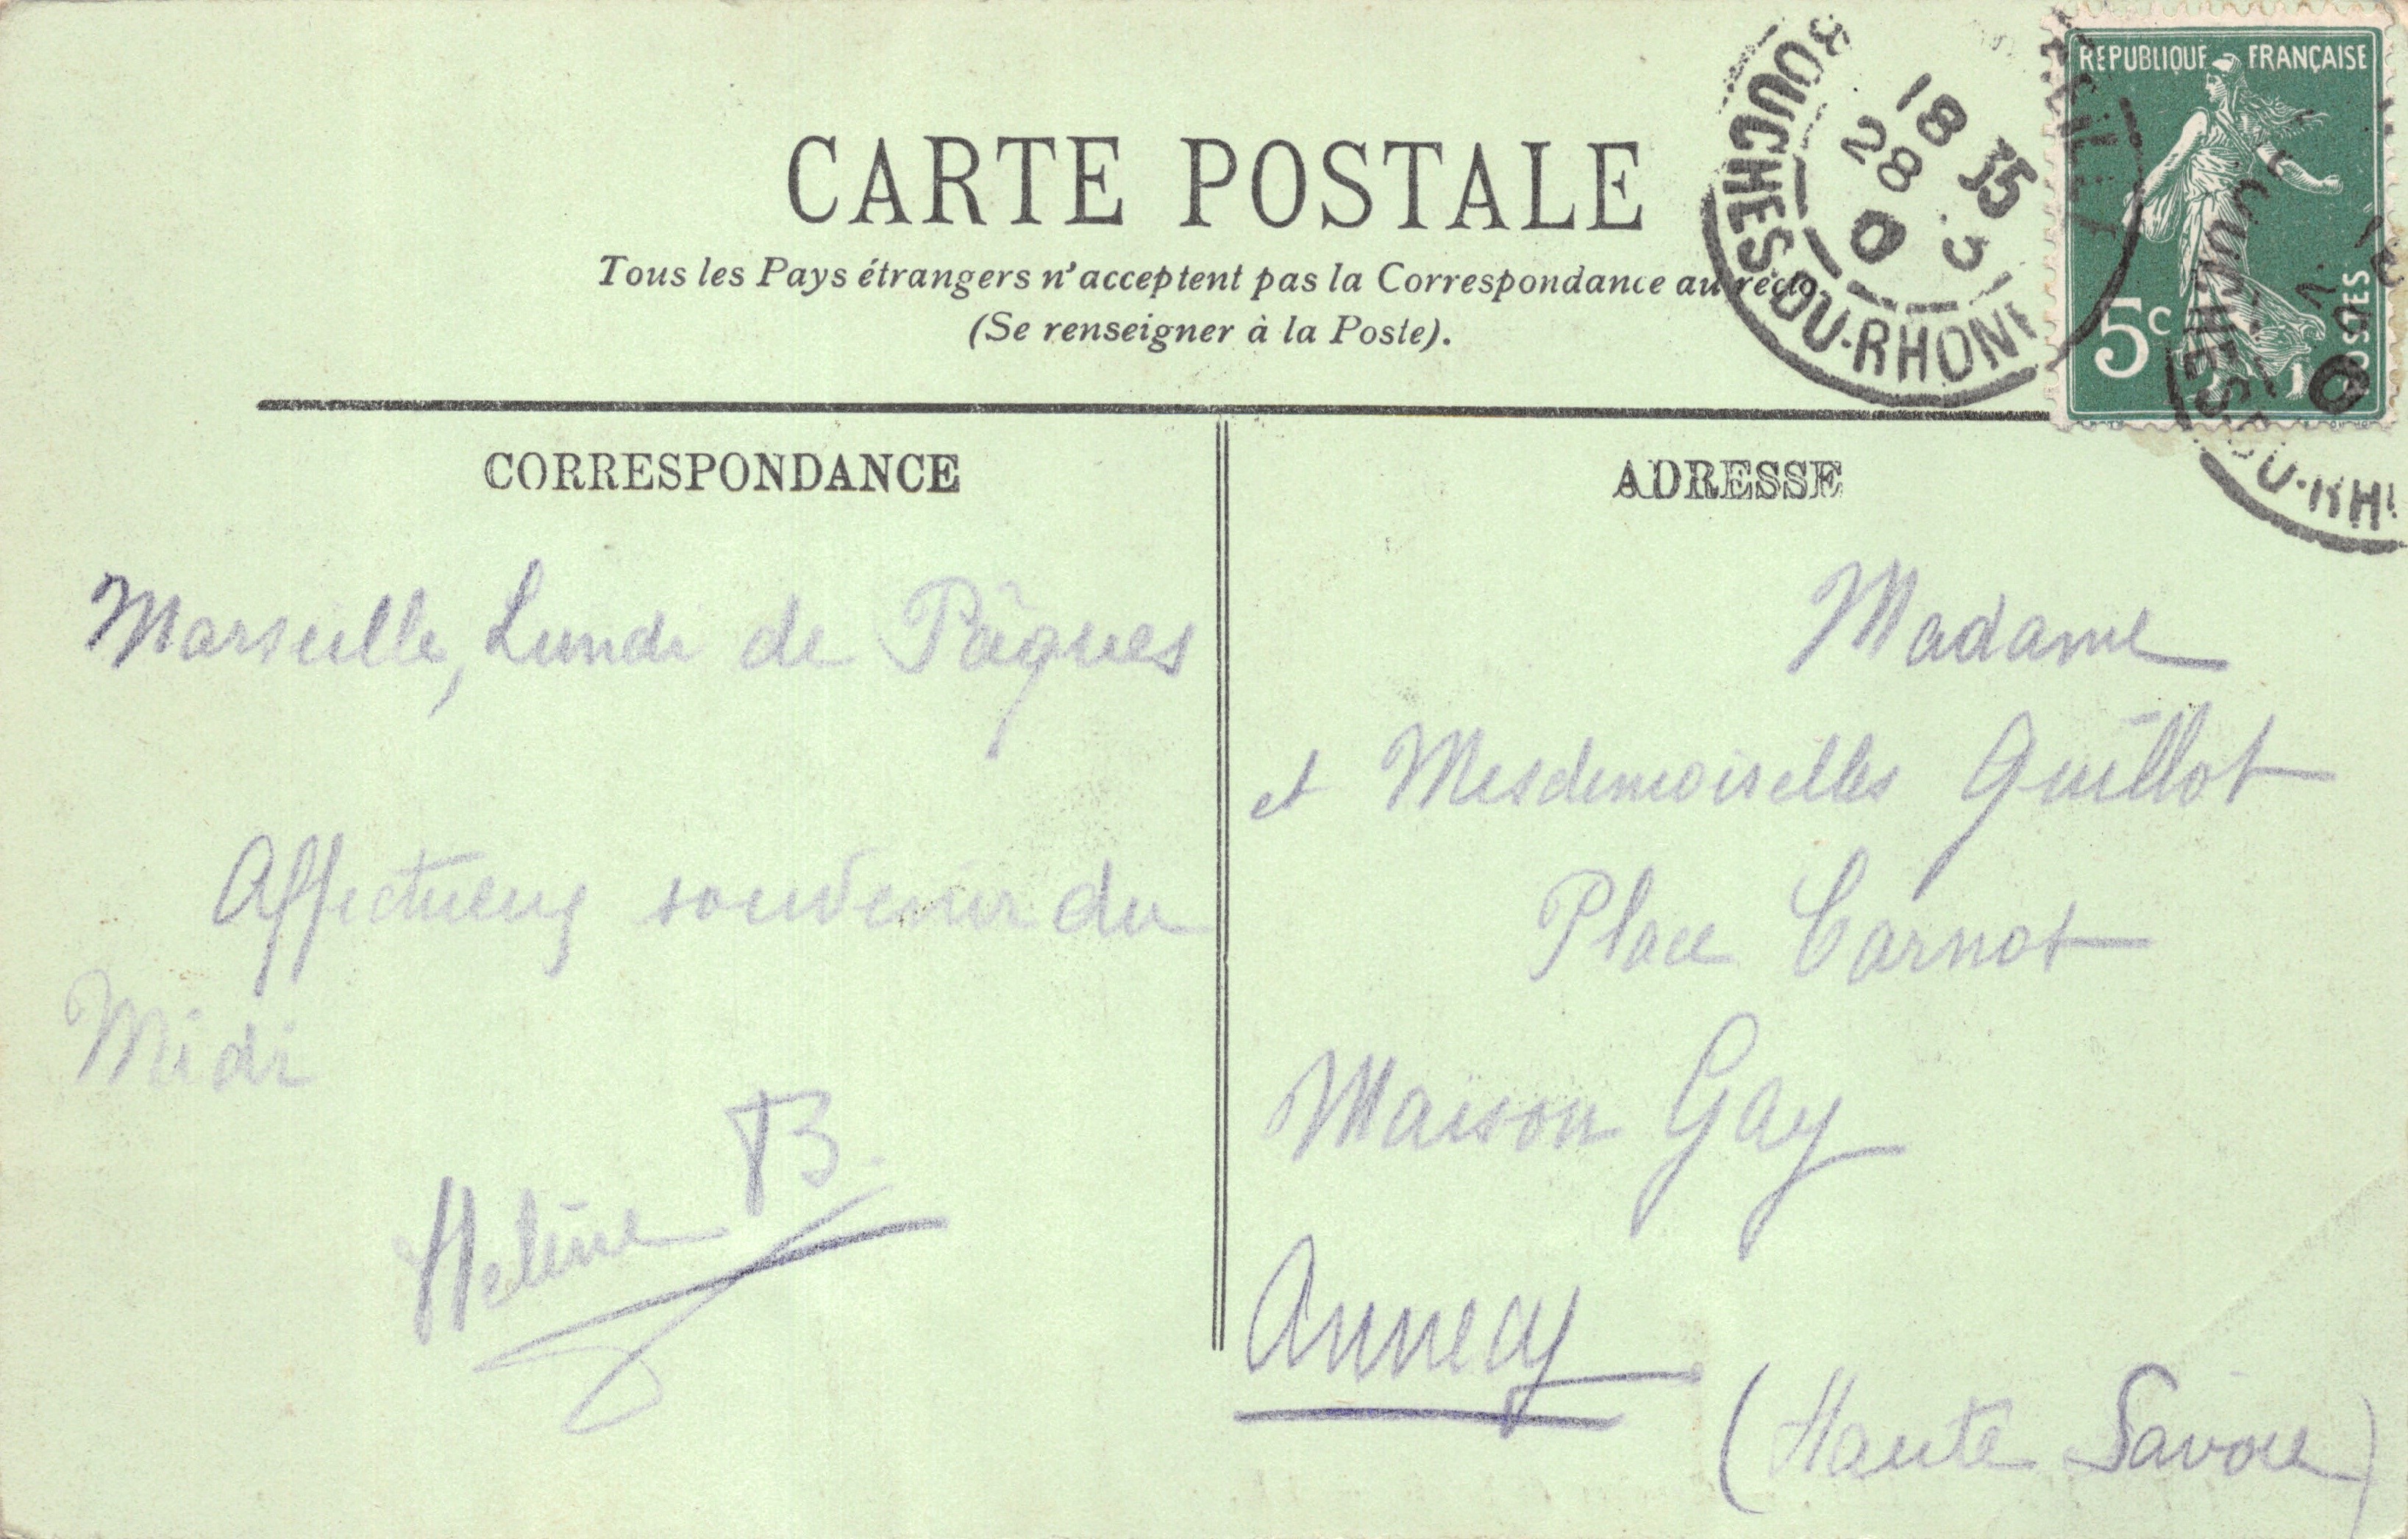 CARTE POSTALE
Tous les Pays étrangers n'acceptent pas la Correspondance au recto
(Se renseigner à la Poste).
RÉPUBLIQUE FRANÇAISE
5c
POSTES
BOUCHES-DU-RHONE
18 35
28
CORRESPONDANCE
Marseille, Lundi de Pâques
Affectueux souvenir du
Midi
Helène B.
ADRESSE
Madame
et Mesdemoiselles Guillot
Place Carnot
Maison Gay
Annecy
(Haute Savoie)